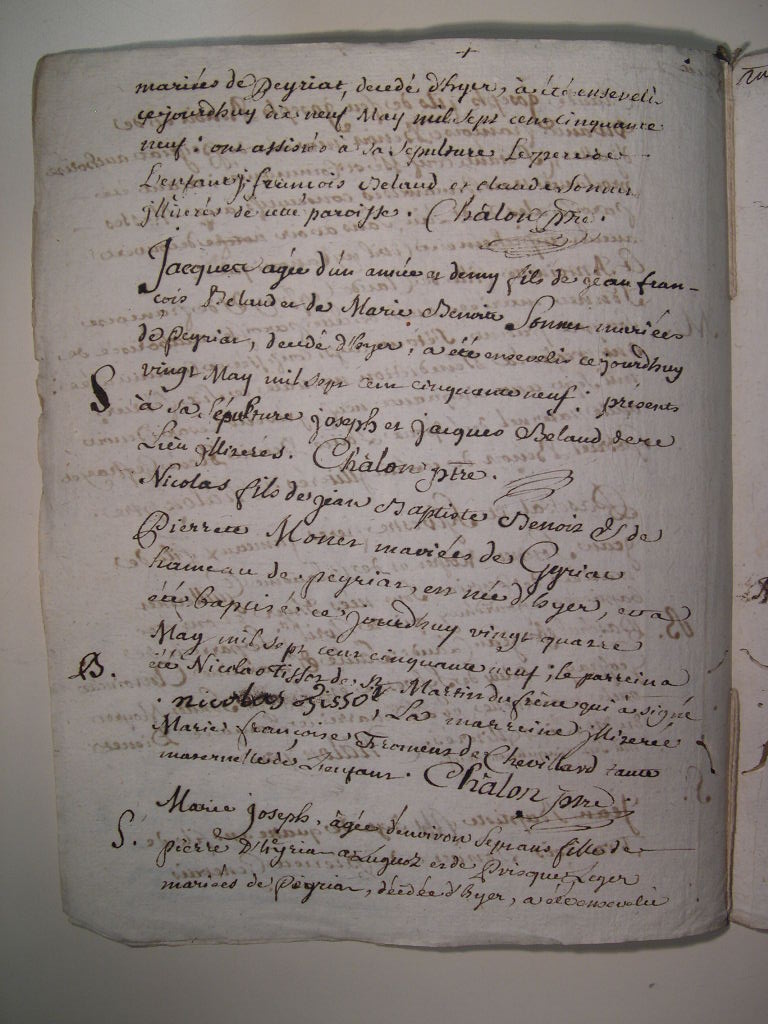 +
mariées de Peyriat, decedé d'hyer, à été enseveli
cejourdhuy dix neuf May mil sept cent cinquante
neuf : ont assistés à sa sepulture Le pere de
L'enfant j. francois Beland et claude Sonner
jllitérés de cette paroisse. Châlon ptre.
Jacques agée d'un année et demy fils de jean fran-
cois Beland et de Marie Benoite Sonner mariées
de Peyriat, decedé d'hyer, a été enseveli ce jourdhuy
vingt May mil sept cent cinquante neuf : présents
S
à sa sépulture joseph et jacques Beland de ce
Lieu jlliterés. Châlon ptre.
Nicolas fils de jean Baptiste Benoit & de
Pierrete Monet mariées de
hameau de peyriat, est née d'hyer, et a
été baptisé ce jourdhuy vingt quatre
May mil sept cent cinquante neuf ; le parrein a
B.
été Nicolas Tissot de St Martin du frêne qui à signé
. nicolas Tissot , La marreine jlliterée
Marie francoise Froment de Chevillard tante
maternelle de L'enfant. Châlon ptre.
Marie joseph, âgée d'environ Sept ans fille de
S.
pierre D'hyria et de Prisque Leger
mariées de Peyriat, décédée d'hyer, a été ensevelie